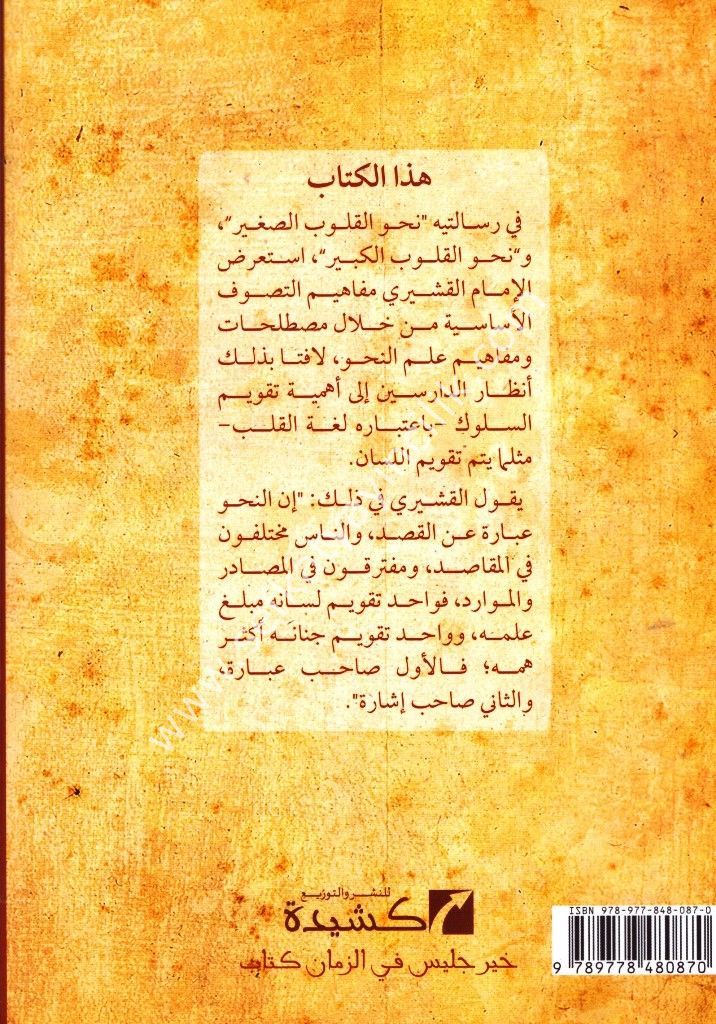 هذا الكتاب
في رسالتيه "نحو القلوب الصغير"،
و"نحو القلوب الكبير"، استعرض
الإمام القشيري مفاهيم التصوف
الأساسية من خلال مصطلحات
ومفاهيم علم النحو، لافتا بذلك
أنظار الدارسين إلى أهمية تقويم
السلوك -باعتباره لغة القلب-
مثلما يتم تقويم اللسان.
يقول القشيري في ذلك: "إن النحو
عبارة عن القصد، والناس مختلفون
في المقاصد، ومفترقون في المصادر
والموارد، فواحد تقويم لسانه مبلغ
علمه، وواحد تقويم جنانَه أكثر
همه؛ فالأول صاحب عبارة،
والثاني صاحب إشارة".
للنشر والتوزيع
كشيدة
خير جليس في الزمان كتاب
ISBN 978-977-848-087-0
9 789778 480870